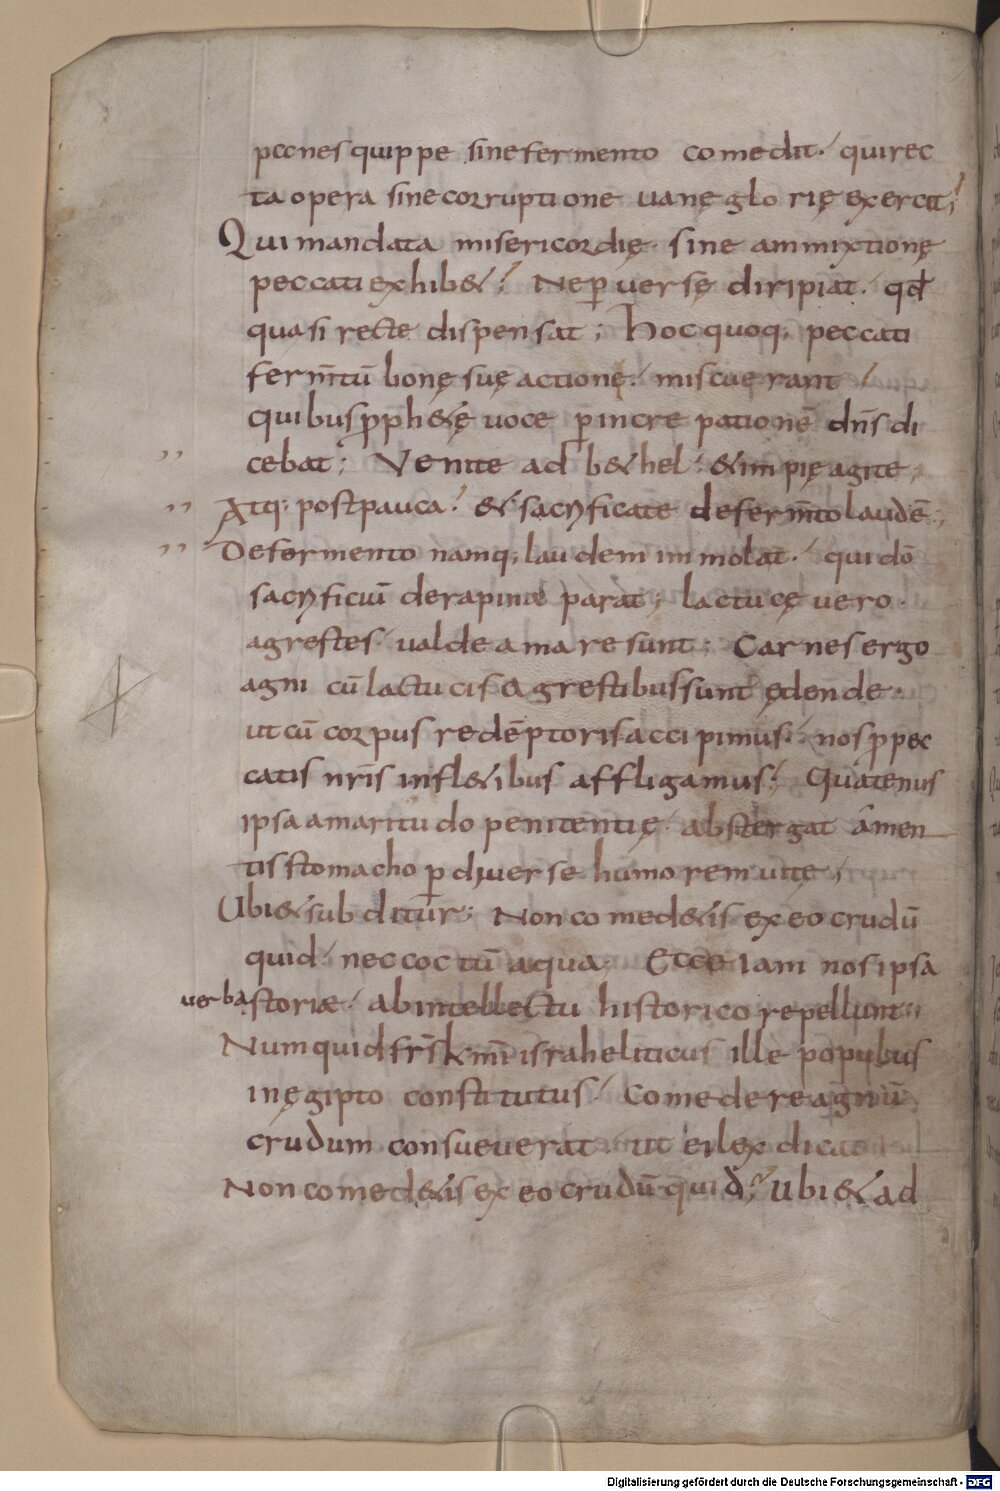 pccnes quippe sine fermento comedit· qui rec
ta opera sine corruptione uanę glorię exercit;
Qui mandata misericordię· sine ammixtionę
peccati exhib&; Ne ꝑuersę diripiat· qđ
quasi recte dispensat; Hoc quoq; peccati
ferm̄tū bonę suę actionę· miscuerant
quibus ꝓph&ę uoce ꝑ increpationē dn̄s di
cebat; Venite ad b&hel· & impię agite;
Atq; post pauca· & sacrificate de ferm̄to laudē;
De fermento namq; laudem immolat· qui dō
sacrificiū de rapina parat; lactucę uero·
agrestes· ualde amare sunt; Carnes ergo
agni cū lactucis agrestibus sunt ędende·
ut cū corpus redēptoris accipimus· nos ꝓ pec
catis nr̄is in fl&ibus affligamus; Quatenus
ipsa amaritudo penitentię· abstergat a men
tis stomacho ꝑuerse humorem uitę;
Ubi & subditur; Non comed&is ex eo crudū
quid· nec coctū aqua; Ecce iam nos ipsa
uerba storiæ· ab intellectu historico repellunt;
Numquid fr̄s k̄mi israheliticus ille populus
in ęgipto constitutus· Comedere agnū
crudum consueuerat· ut ei lex dicat
Non comed&is ex eo crudū quid; Ubi & ad
Digitalisierung gefördert durch die Deutsche Forschungsgemeinschaft - DFG